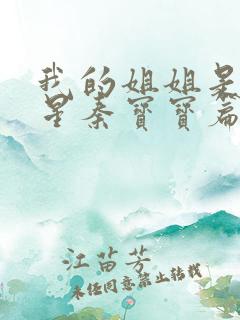 我的姐姐
星秦寶寶篇
江苗芳
未经同意禁止转载